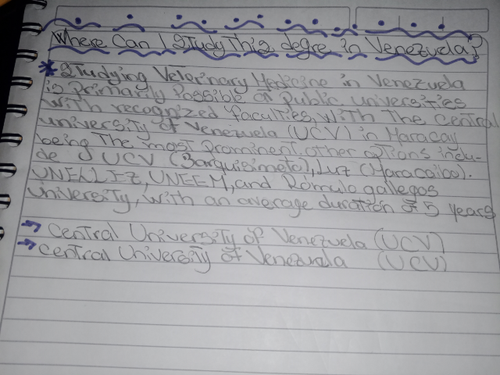 Where Can I Study This degre in Venezuela?
* Studying Veterinary Medicine in Venezuela
is Primarily Possible at Public universities
with recognized faculties, with The Central
university of Venezuela (UCV) in Maracay
being The most Prominent. other options inclu-
de UCV (Barquisimeto), Luz (Maracaibo).
UNELLEZ, UNEFM, and Rómulo gallegos
University, with an average duration of 5 years
→ Central University of Venezuela (UCV)
→ Central University of Venezuela (UCV)